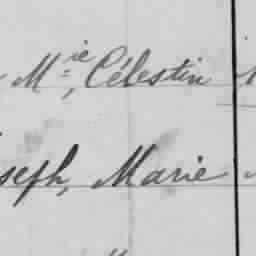 Mie, Célestin
seph, Marie